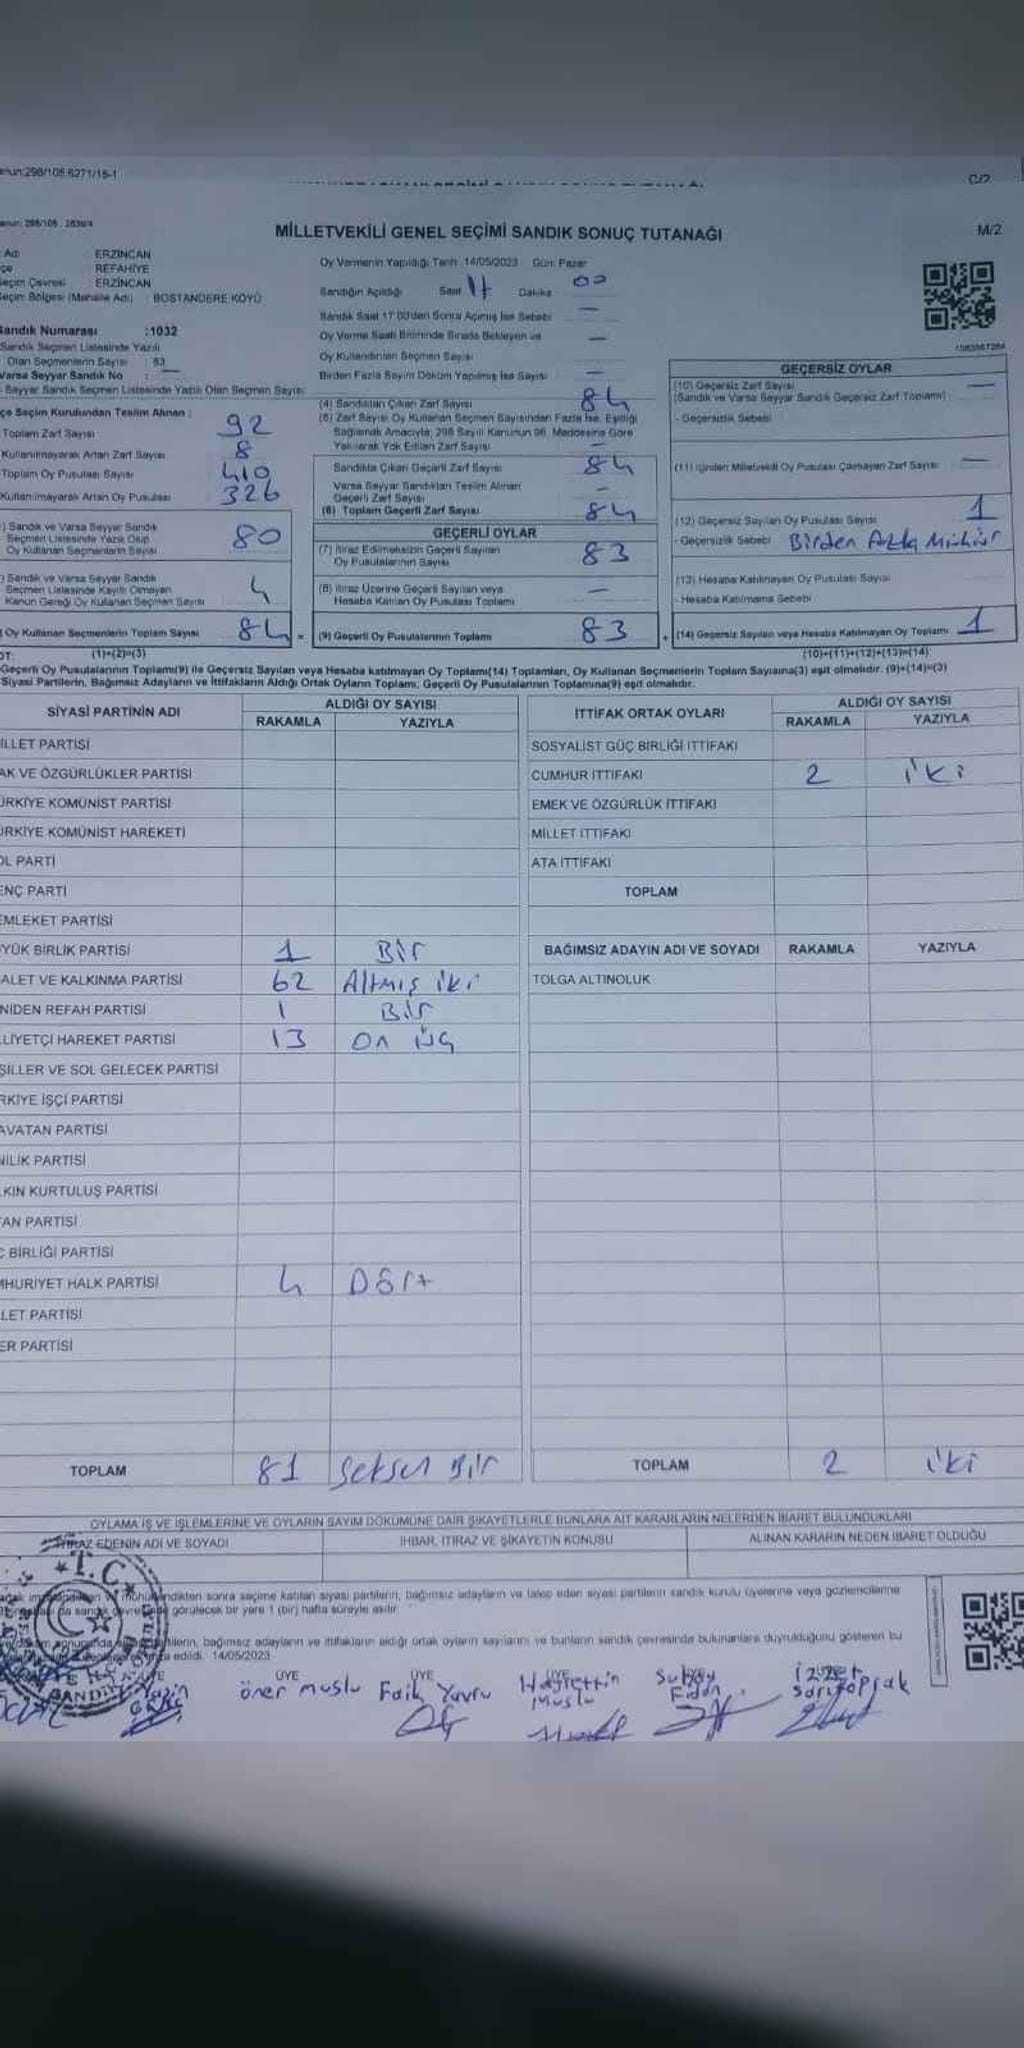 C/2
MİLLETVEKİLİ GENEL SEÇİMİ SANDIK SONUÇ TUTANAĞI
M/2
ERZİNCAN
REFAHİYE
Seçim Çevresi : ERZİNCAN
Seçim Bölgesi (Mahalle Adı) : BOSTANDERE KÖYÜ
Sandık Numarası :1032
Sandık Seçmen Listesinde Yazılı
Olan Seçmenlerin Sayısı
Varsa Seyyar Sandık No : —
Seyyar Sandık Seçmen Listesinde Yazılı Olan Seçmen Sayısı
İlçe Seçim Kurulundan Teslim Alınan :
Toplam Zarf Sayısı 92
Kullanılmayarak Artan Zarf Sayısı 8
Toplam Oy Pusulası Sayısı 410
Kullanılmayarak Artan Oy Pusulası 326
) Sandık ve Varsa Seyyar Sandık
Seçmen Listesinde Yazılı Olup
Oy Kullanan Seçmenlerin Sayısı 80
) Sandık ve Varsa Seyyar Sandık
Seçmen Listesinde Kayıtlı Olmayan
Kanun Gereği Oy Kullanan Seçmen Sayısı 4
) Oy Kullanan Seçmenlerin Toplam Sayısı 84 =
(1)+(2)=(3)
Oy Vermenin Yapıldığı Tarih 14/05/2023 Gün: Pazar
Sandığın Açıldığı Saat 17 Dakika 00
Sandık Saat 17:00'den Sonra Açılmış İse Sebebi —
Oy Verme Saati Bitiminde Sırada Bekleyen ve —
Oy Kullandırılan Seçmen Sayısı
Birden Fazla Sayım Döküm Yapılmış İse Sayısı —
(4) Sandıktan Çıkan Zarf Sayısı 84
(5) Zarf Sayısı Oy Kullanan Seçmen Sayısından Fazla İse, Eşitliği
Sağlamak Amacıyla, 298 Sayılı Kanunun 98. Maddesine Göre
Yakılarak Yok Edilen Zarf Sayısı —
Sandıkta Çıkan Geçerli Zarf Sayısı 84
Varsa Seyyar Sandıktan Teslim Alınan
Geçerli Zarf Sayısı —
(6) Toplam Geçerli Zarf Sayısı 84
GEÇERLİ OYLAR
(7) İtiraz Edilmeksizin Geçerli Sayılan
Oy Pusulalarının Sayısı 83
(8) İtiraz Üzerine Geçerli Sayılan veya
Hesaba Katılan Oy Pusulası Toplamı —
(9) Geçerli Oy Pusulalarının Toplamı 83 +
GEÇERSİZ OYLAR
(10) Geçersiz Zarf Sayısı —
(Sandık ve Varsa Seyyar Sandık Geçersiz Zarf Toplamı)
- Geçersizlik Sebebi
(11) İçinden Milletvekili Oy Pusulası Çıkmayan Zarf Sayısı —
(12) Geçersiz Sayılan Oy Pusulası Sayısı 1
- Geçersizlik Sebebi Birden Fazla Mühür
(13) Hesaba Katılmayan Oy Pusulası Sayısı
- Hesaba Katılmama Sebebi
(14) Geçersiz Sayılan veya Hesaba Katılmayan Oy Toplamı 1
(10)+(11)+(12)+(13)=(14)
Geçerli Oy Pusulalarının Toplamı(9) ile Geçersiz Sayılan veya Hesaba katılmayan Oy Toplamı(14) Toplamları, Oy Kullanan Seçmenlerin Toplam Sayısına(3) eşit olmalıdır. (9)+(14)=(3)
Siyasi Partilerin, Bağımsız Adayların ve İttifakların Aldığı Ortak Oyların Toplamı; Geçerli Oy Pusulalarının Toplamına(9) eşit olmalıdır.
SİYASİ PARTİNİN ADI
ALDIĞI OY SAYISI
RAKAMLA YAZIYLA
İLLET PARTİSİ
AK VE ÖZGÜRLÜKLER PARTİSİ
ÜRKİYE KOMÜNİST PARTİSİ
ÜRKİYE KOMÜNİST HAREKETİ
OL PARTİ
ENÇ PARTİ
EMLEKET PARTİSİ
YÜK BİRLİK PARTİSİ 1 Bir
ALET VE KALKINMA PARTİSİ 62 Altmış iki
NİDEN REFAH PARTİSİ 1 Bir
LLİYETÇİ HAREKET PARTİSİ 13 On üç
ŞİLLER VE SOL GELECEK PARTİSİ
RKİYE İŞÇİ PARTİSİ
AVATAN PARTİSİ
NİLİK PARTİSİ
LKIN KURTULUŞ PARTİSİ
TAN PARTİSİ
Ç BİRLİĞİ PARTİSİ
MHURİYET HALK PARTİSİ 4 Dört
LET PARTİSİ
ER PARTİSİ
TOPLAM 81 Seksen Bir
İTTİFAK ORTAK OYLARI
ALDIĞI OY SAYISI
RAKAMLA YAZIYLA
SOSYALİST GÜÇ BİRLİĞİ İTTİFAKI
CUMHUR İTTİFAKI 2 iki
EMEK VE ÖZGÜRLÜK İTTİFAKI
MİLLET İTTİFAKI
ATA İTTİFAKI
TOPLAM
BAĞIMSIZ ADAYIN ADI VE SOYADI RAKAMLA YAZIYLA
TOLGA ALTINOLUK
TOPLAM 2 iki
OYLAMA İŞ VE İŞLEMLERİNE VE OYLARIN SAYIM DÖKÜMÜNE DAİR ŞİKAYETLERLE BUNLARA AİT KARARLARIN NELERDEN İBARET BULUNDUKLARI
İTİRAZ EDENİN ADI VE SOYADI
İHBAR, İTİRAZ VE ŞİKAYETİN KONUSU
ALINAN KARARIN NEDEN İBARET OLDUĞU
mühürlendikten sonra seçime katılan siyasi partilerin, bağımsız adayların ve talep eden siyasi partilerin sandık kurulu üyelerine veya gözlemcilerine
görülecek bir yere 1 (bir) hafta süreyle asılır.
bağımsız adayların ve ittifakların aldığı ortak oyların sayılarını ve bunların sandık çevresinde bulunanlara duyurulduğunu gösteren bu
edildi. 14/05/2023
T.C.
ÜYE ÜYE ÜYE
öner muslu
Faik Yavru
Hayrettin
Muslu
Fidan
izzet
Sarıtoprak